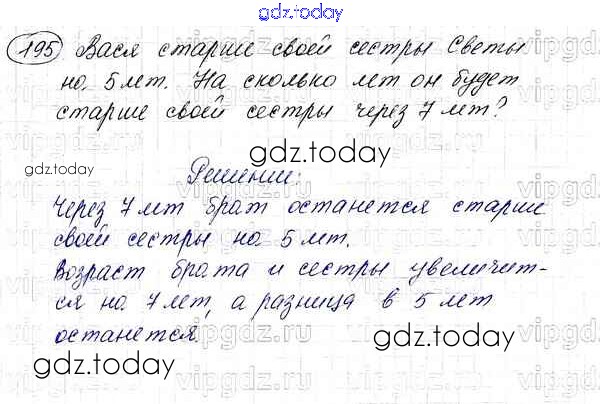 gdz.today
195 Вася старше своей сестры Светы
на 5 лет. На сколько лет он будет
старше своей сестры через 7 лет?
gdz.today
gdz.today
Решении:
Через 7 лет брат останется старше
своей сестры на 5 лет.
Возраст брата и сестры увеличит-
ся на 7 лет, а разница в 5 лет
останется.
gdz.today
gdz.today